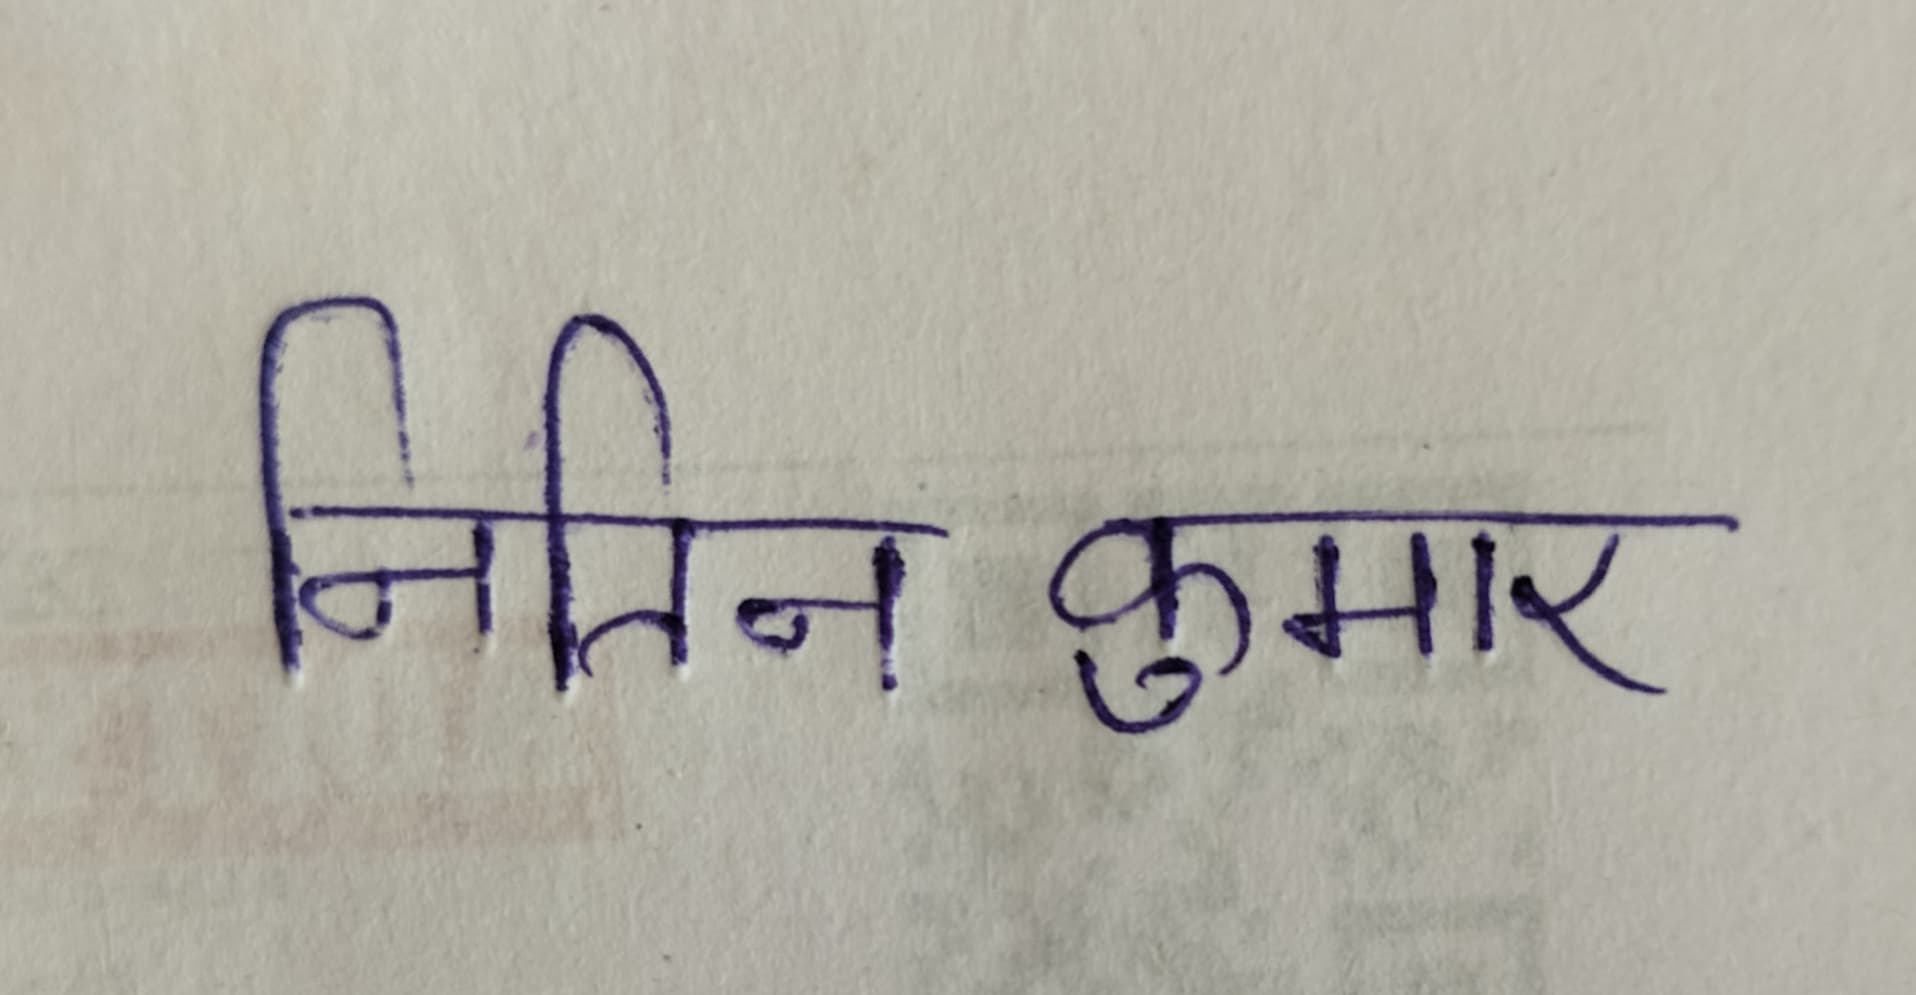 नितिन कुमार